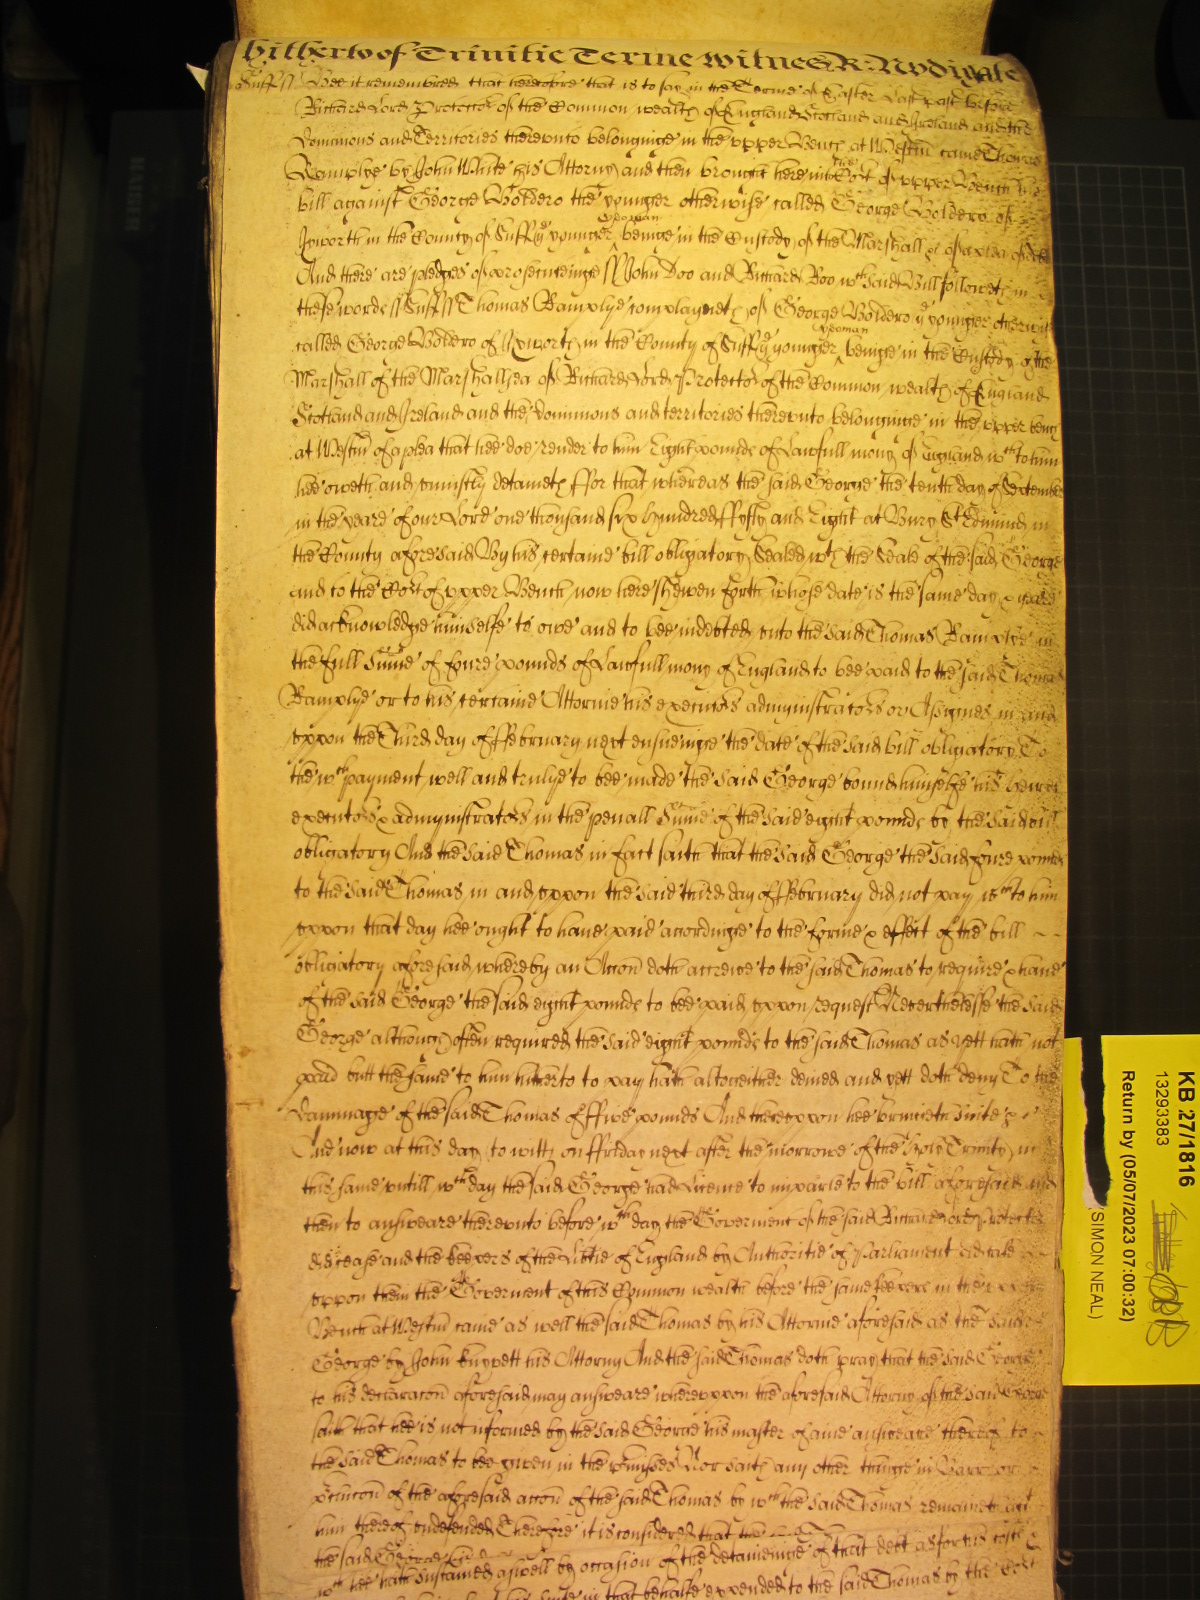 hitherto of Trinitie Terme witnes R: Nudigate
Suff ss Bee it remembred that heretofore that is to say in the Terme of Easter last past before
Richard Lord Protector of the Common wealth of England Scotland and Ireland and the
Dominions and Territories thereunto belonginge in the upper Bench at Westm came Thomas
Ramplye by John White his Attorny and then brought here into the Cort of upper Bench his
bill against George Boldero the younger otherwise called George Boldero of
Ixworth in the County of Suff ye younger yeoman beinge in the Custody of the Marshall &c of a plea of debt
And there are pledges of prosecutinge ss John Doo and Richard Roo wch said Bill followeth in
these words ss Suff ss Thomas Ramplye complayneth of George Boldero ye younger otherwise
called George Boldero of Ixworth in the County of Suff ye younger yeoman beinge in the Custody of the
Marshall of the Marshallsea of Richard Lord Protector of the Common wealth of England
Scotland and Ireland and the Dominions and territories thereunto belonginge in the upper bench
at Westm of a plea that hee doe render to him Eight pounds of Lawfull mony of England wch to him
hee oweth and uniustly detaineth ffor that whereas the said George the tenth day of September
in the yeare of our Lord one thousand six hundred ffyfty and Eight at Bury St Edmund in
the County aforesaid By his certaine bill obligatory Sealed wth the Seale of the said George
and to the Cort of upper Bench now here shewen forth whose date is the same day & yeare
did acknowledge himselfe to owe and to bee indebted unto the said Thomas Ramplye in
the full Sume of foure pounds of Lawfull mony of England to bee paid to the said Thomas
Ramplye or to his certaine Attornie his executors administrators or Assignes in and
uppon the Third day of ffebruary next ensueinge the date of the said bill obligatory To
the wch payment well and trulye to bee made the said George bound himselfe his heires
executors & administrators in the penall Sume of the said eight pounds by the said bill
obligatory And the said Thomas in fact saith that the said George the said foure pounds
to the said Thomas in and uppon the said third day of ffebruary did not pay wch to him
uppon that day hee ought to have paid accordinge to the forme & effect of the bill
obligatory aforesaid whereby an Accon doth accrewe to the said Thomas to require & have
of the said George the said eight pounds to bee paid uppon request Neverthelesse the said
George although often required the said eight pounds to the said Thomas as yett hath not
paid butt the same to him hitherto to pay hath altogeither denied and yett doth deny To the
dammage of the said Thomas of ffive pounds And thereuppon hee bringeth Suite &c
And now at this day to witt on ffriday next after the morrowe of the holy Trinity in
this same untill wch day the said George had Licence to imparle to the bill aforesaid and
then to answeare thereunto before wch day the Goverment of the said Richard Lord Protector
did cease and the keepers of the Libtie of England by Authoritie of Parliament did take
uppon them the Goverment of this Common wealth before the same keepers in the upper
Bench at Westm came as well the said Thomas by his Attornie aforesaid as the said
George by John Knypett his Attorny And the said Thomas doth pray that the said George
to his declaracon aforesaid may answeare whereuppon the aforesaid Attorny of the said George
saith that hee is not informed by the said George his master of anie answeare thereof to
the said Thomas to bee given in the pmisses Nor saith any other thinge in Barr or
pclucon of the aforesaid accon of the said Thomas by wch the said Thomas remaineth agt
him thereof undefended Therefore it is considered that the
the said George
wch hee hath sustained aswell by occasion of the detaininge of that debt as for his costs
Suite in that behalfe expended to the said Thomas by the Cort
KB 27/1816
13293383
Return by (05/07/2023 07:00:32)
(SIMON NEAL)